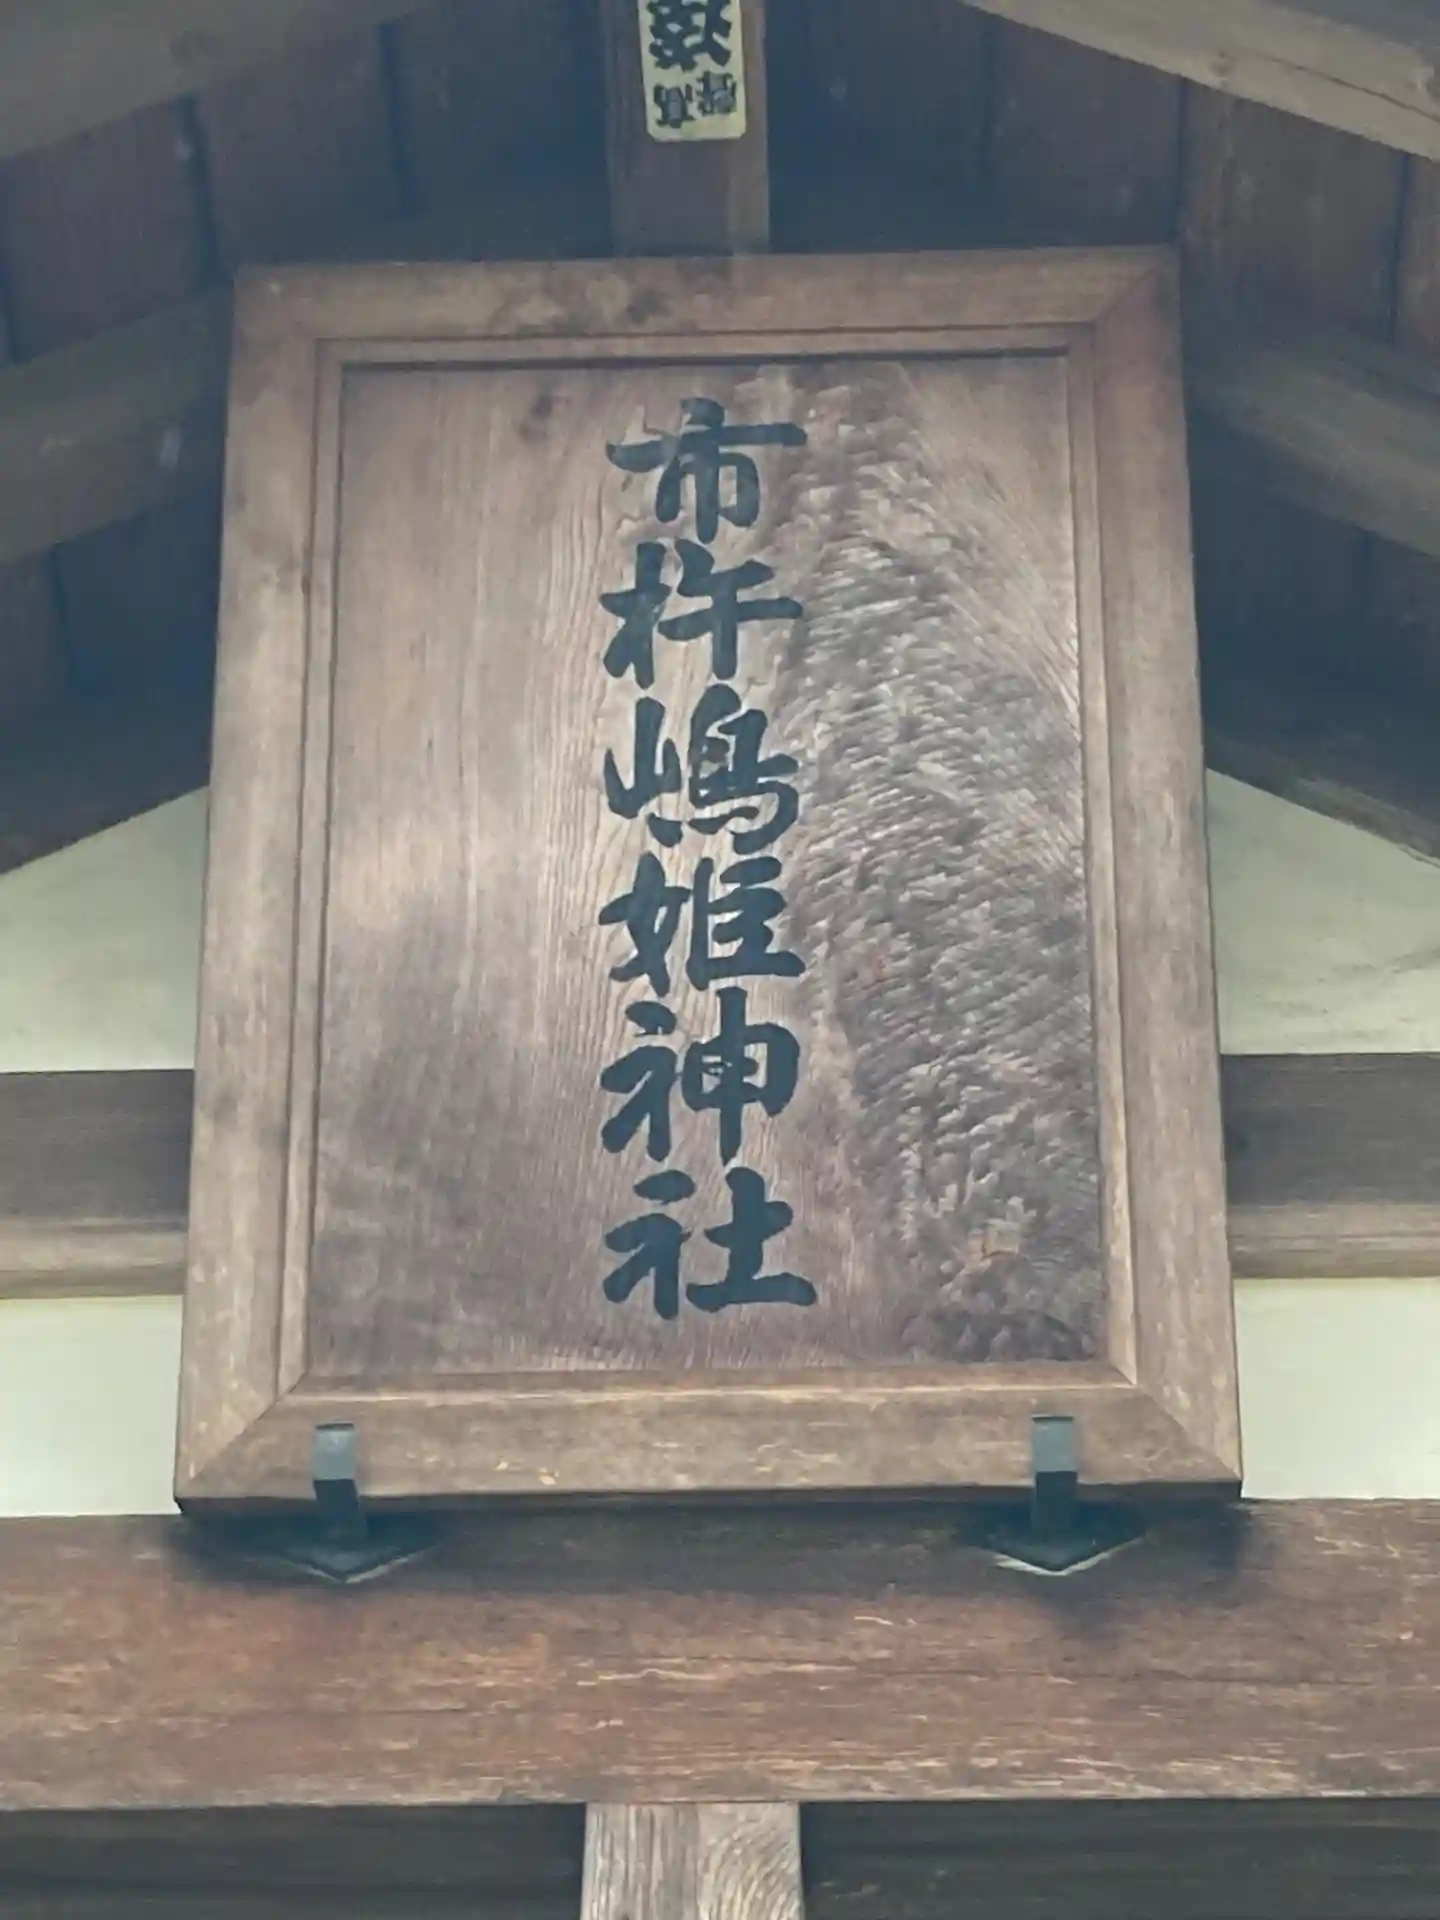 市杵嶋姫神社